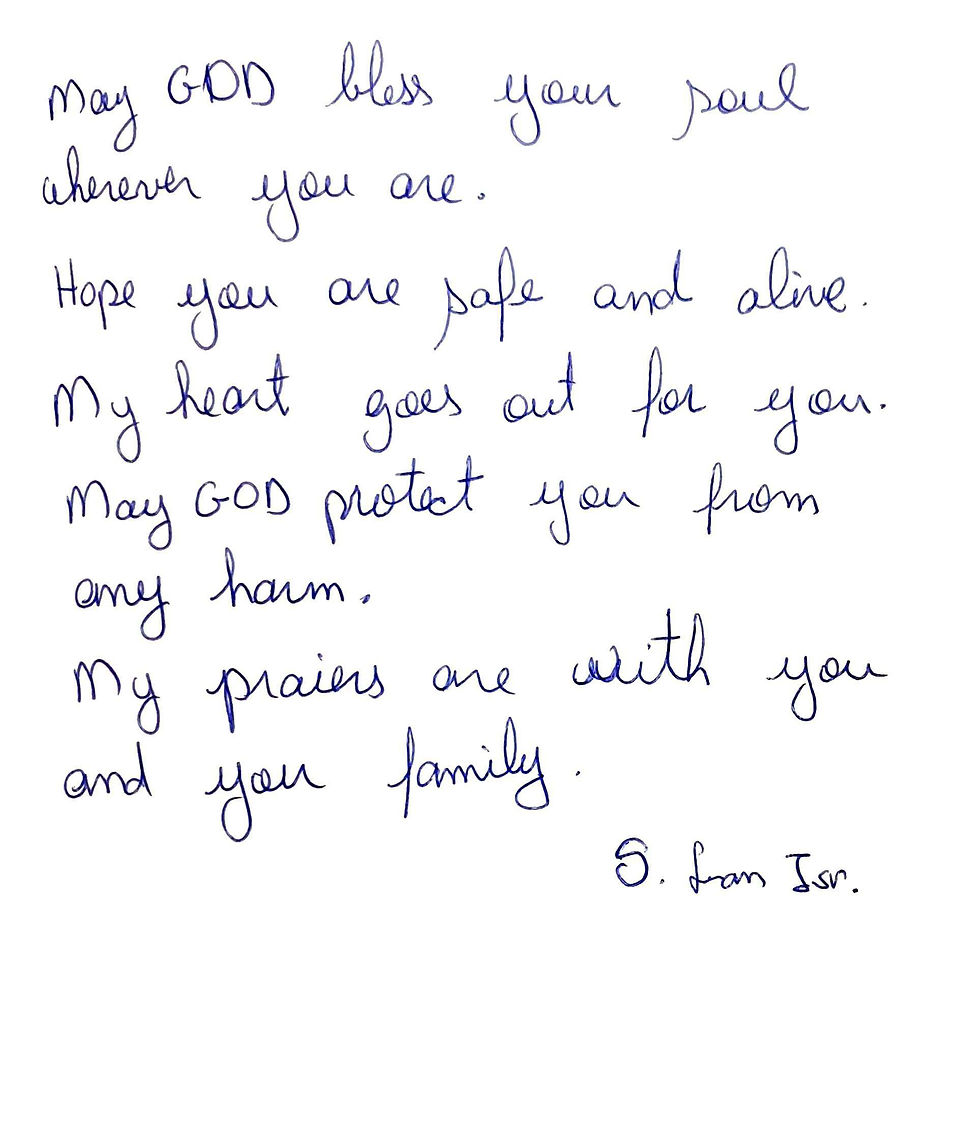 May GOD bless your soul
wherever you are.
Hope you are safe and alive.
My heart goes out for you.
May GOD protect you from
any harm.
My praiers are with you
and your family.
S. from Isr.